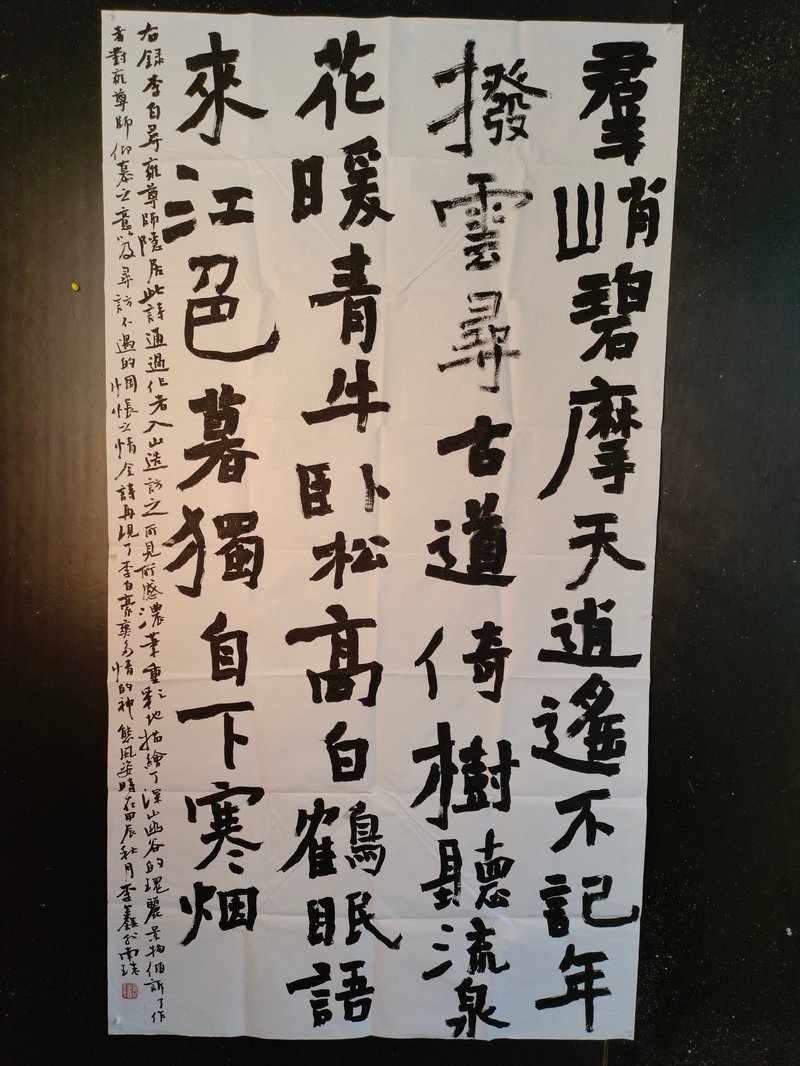 羣峭碧摩天逍遙不記年
撥雲尋古道倚樹聽流泉
花暖青牛卧松高白鶴眠語
來江色暮獨自下寒烟
右録李白尋雍尊師隱居此詩通過作者入山造訪之所見所感濃筆重彩地描繪了深山幽谷的瑰麗景物傾訴了作
者對雍尊師仰慕之意以及尋訪不遇的惆悵之情全詩再現了李白豪爽多情的神態風姿時在甲辰秋月李鑫於南